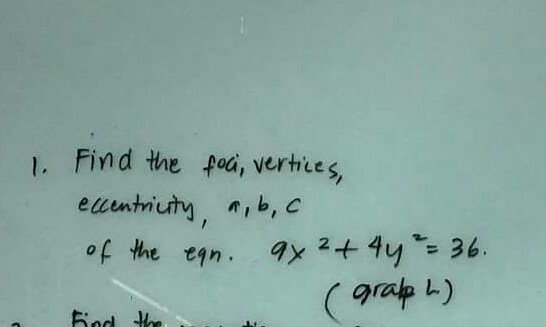 1. Find the foci, vertices,
eccentricity, a, b, c
of the eqn. 9x² + 4y² = 36.
(graph)
Find the